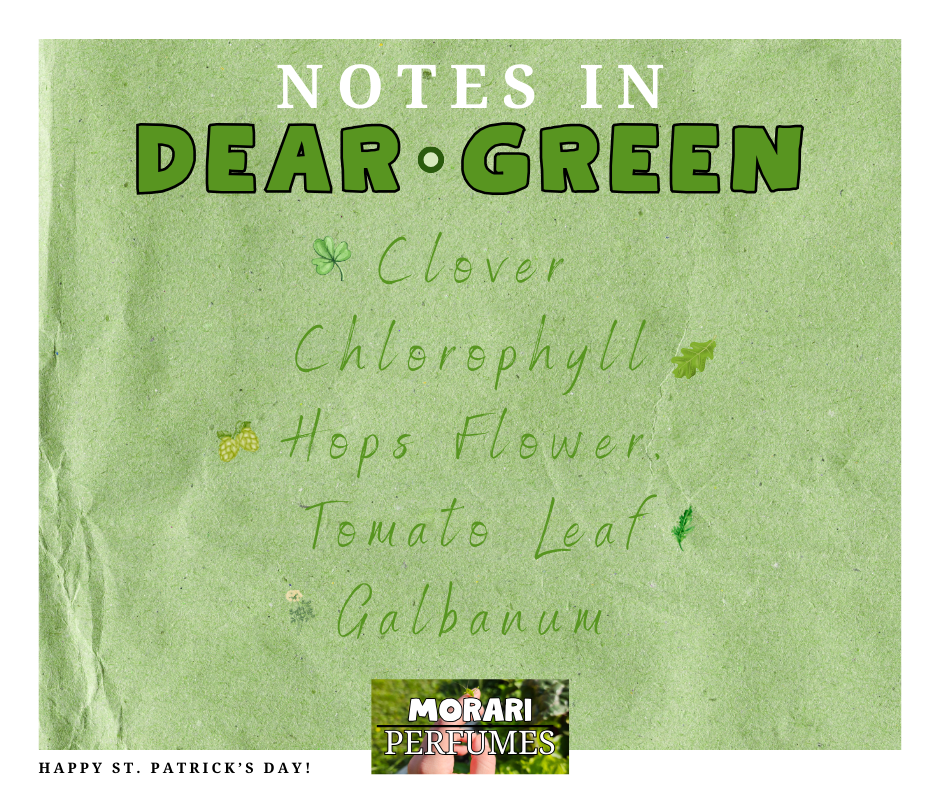 NOTES IN
DEAR GREEN
Clover
Chlorophyll
Hops Flower.
Tomato Leaf
Galbanum
MORARI
PERFUMES
HAPPY ST. PATRICK'S DAY!